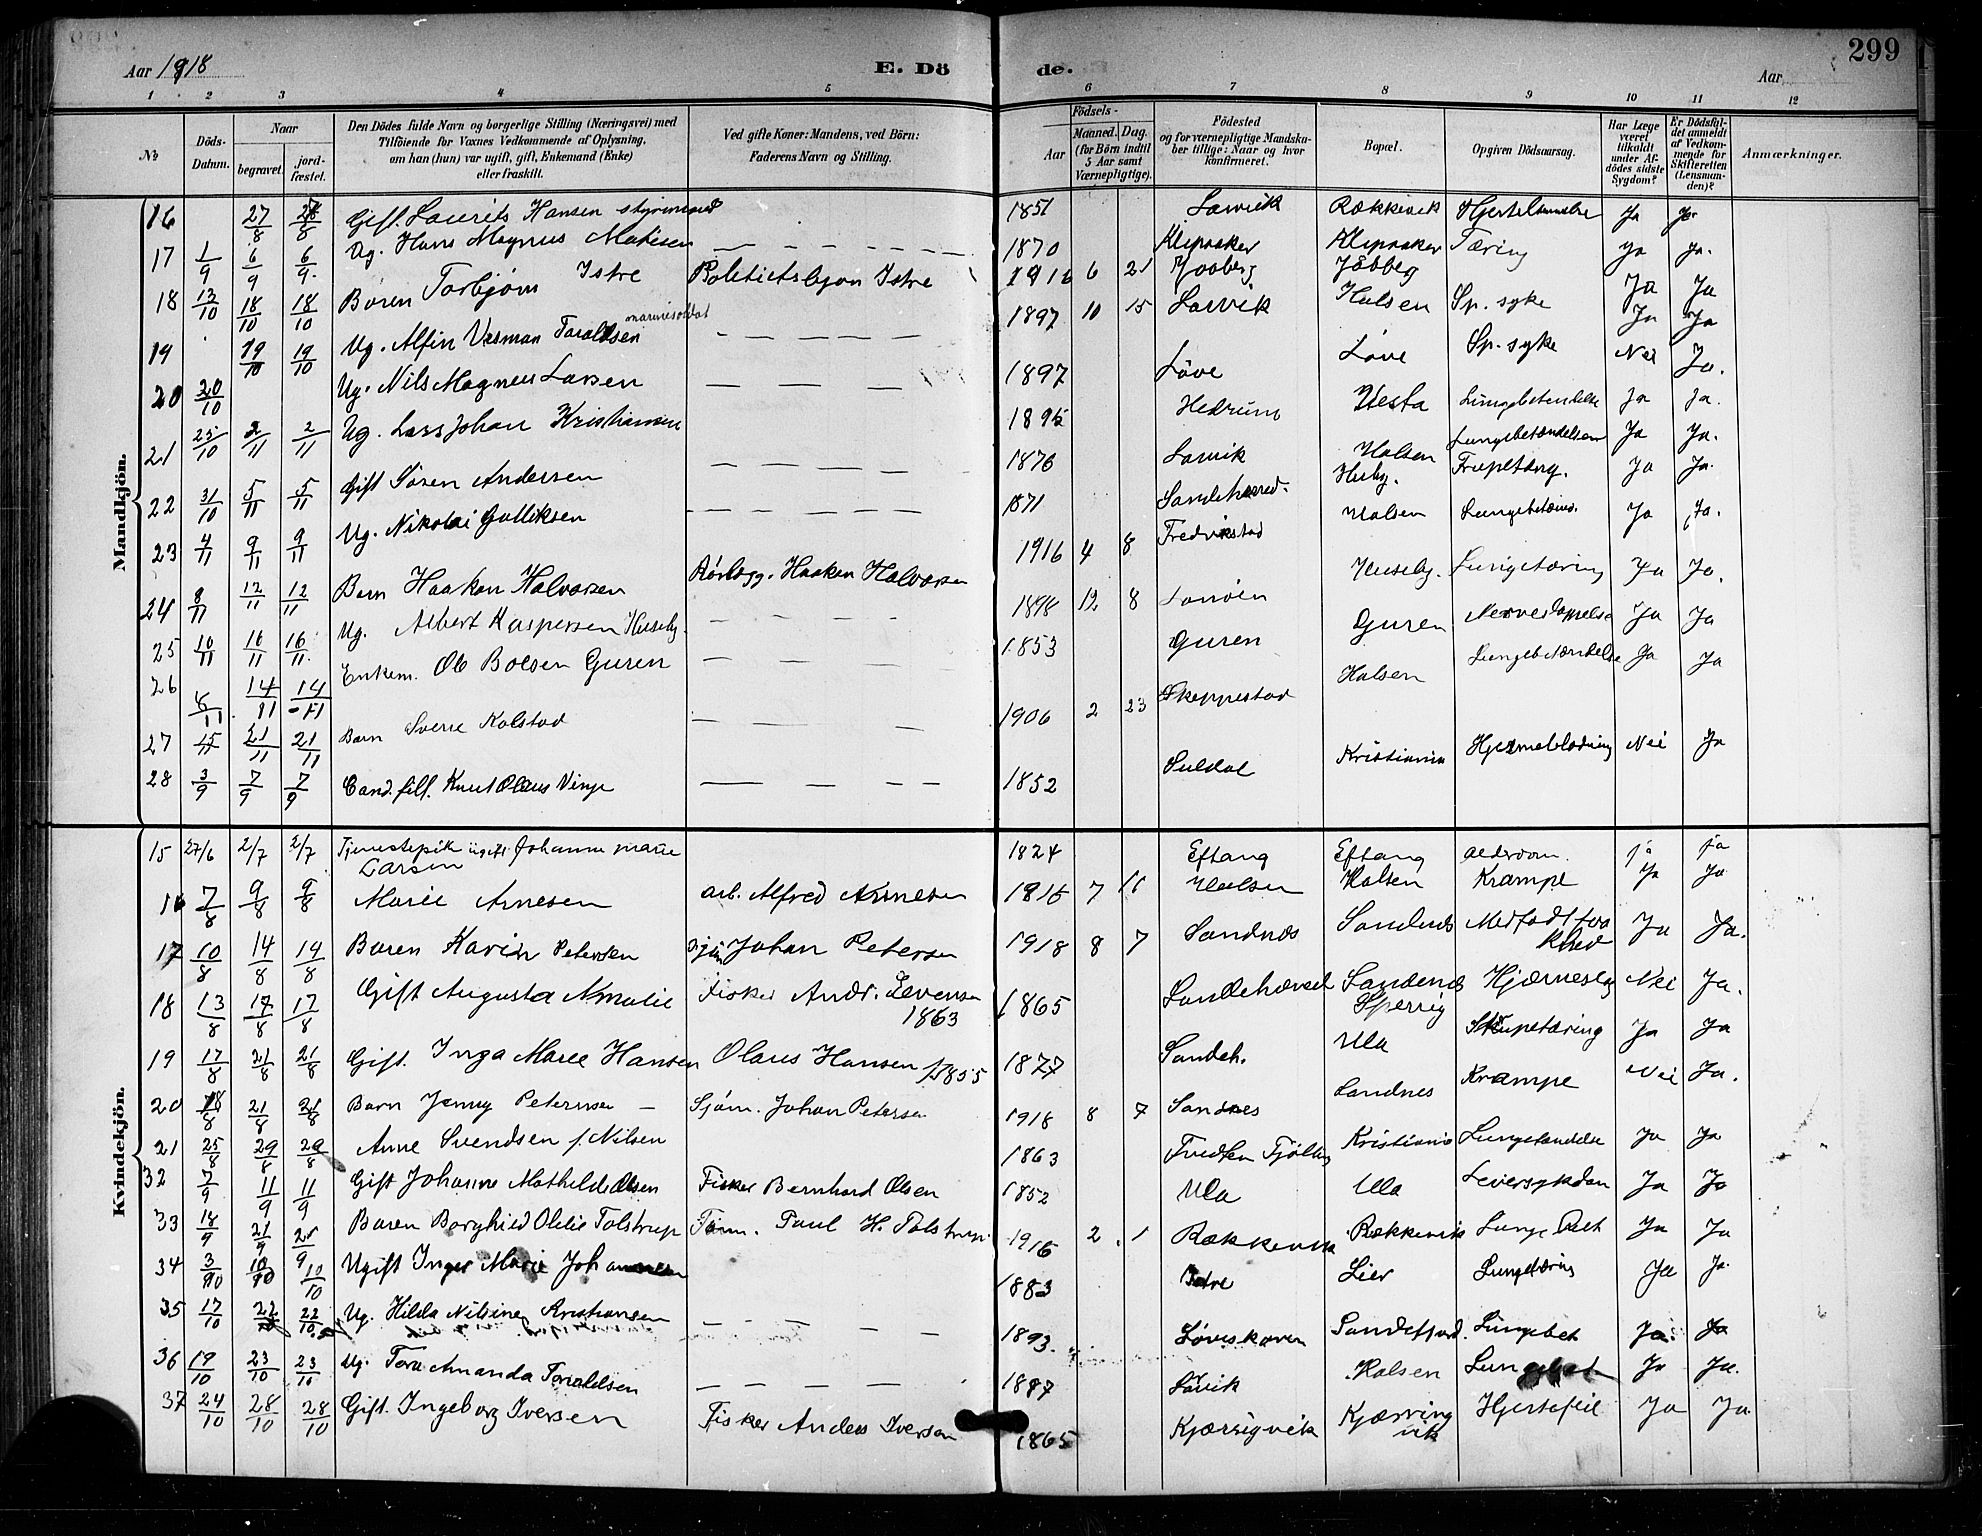 299
Aar 1918 E. Dö de. Aar
1 2 3 4 5 6 7 8 9 10 11 12
No
Döds-Datum.
Naar
begravet.
jordfæstet.
Den Dödes fulde Navn og borgerlige Stilling (Næringsvei) med
Tilföiende for Voxnes Vedkommende af Oplysning,
om han (hun) var ugift, gift, Enkemand (Enke)
eller fraskilt.
Ved gifte Koner: Mandens, ved Börn:
Faderens Navn og Stilling.
Födsels-
Aar
Maaned. Dag.
(for Börn indtil
5 Aar samt
Værnepligtige).
Födested
og for værnepligtige Mandskaber
tillige: Naar og hvor
konfirmeret.
Bopæl.
Opgiven Dödsaarsag.
Har Læge været tilkaldt under Afdödes sidste Sygdom?
Er Dödsfaldet anmeldt af Vedkommende for Skifteretten (Lensmanden)?
Anmærkninger.
Mandkjön.
16 27/8 Gift. Laurits Hansen styrmand 1851 Larvik Rækkevik Ja Ja
17 1/9 6/9 6/9 Ug. Hans Magnus 1870 Klipaaker Klipaaker Tæring ja ja.
18 13/10 18/10 18/10 Baren Torbjørn Istre Istre 1916 6 21 Ja Ja
19 19/10 19/10 Ug. Alfin Taraldsen marinesoldat 1897 10 15 Larvik Halsen Sp. syke Ja Ja
20 20/10 Ug. Nils Magnus Larsen 1897 Løve Løve Sp. syke Nei Ja.
21 25/10 2/11 2/11 Ug. Lars Johan Kristiansen Hedrum Lungebetendelse Ja Ja.
22 31/10 5/11 5/11 Gift Søren Andersen 1876 Larvik Halsen Lungebetændelsen Ja Ja.
23 4/11 9/11 9/11 Ug. Nikolai Gulliksen 1871 Sandeherred. Huby. Ja Ja.
24 8/11 12/11 12/11 Barn Haakon Halvorsen Rørlegg. Haakon Halvorsen 1916 4 8 Fredrikstad Halsen Ja Ja.
25 10/11 16/11 16/11 Ug. Albert Kaspersen Huseby. 1898 12 8 Huseby. Lungetæring Ja Ja.
26 8/11 14/11 14/11 Enkem. Ole Bolsen Guren 1853 Guren Guren Ja Ja
27 15/11 21/11 21/11 Barn Sverre Kolstad 1906 2 23 Skeppestad Halsen Lungebetændelse Ja Ja
28 3/9 7/9 7/9 Cand. fill. Knut Olaus Vinje 1852 Suldal Kristiania Hjerneblødning Nei Ja
Kvindekjön.
15 27/6 2/7 2/7 Tjenestepik ugift Johanne Marie
Larsen 1824 Eftang Eftang alderdom. ja ja
16 7/8 9/8 9/8 Marie Arnesen arb. Alfred Arnesen 7 Halsen Halsen Krampe Ja Ja
17 10/8 14/8 14/8 Baren Karin Petersen Johan Petersen 1918 8 7 Sandnes Sandnes Medfødt
Ja Ja.
18 13/8 17/8 17/8 Gift Augusta Amalie Fisker Andr. Evensen
1863 1865 Sandeherred Sandenes
Nei Ja.
19 17/8 21/8 21/8 Gift. Inga Marie Hansen Olaus Hansen f 1855 1877 Sandeh. Ula Strupetæring Ja Ja
20 18/8 21/8 21/8 Barn Jenny Petersen Sjøm. Johan Petersen 1918 8 7 Sandnes Sandnes Krampe Nei Ja.
21 25/8 29/8 29/8 Anne Svendsen f. Nilsen 1863 Kristiania Ja Ja
32 7/9 11/9 11/9 Gift Johanne Mathilde Olsen Fisker Bernhard Olsen 1852 Ula Ula Leversykdom Ja Ja
33 18/9 21/9 21/9 Baren Borghild Otelie Tolstrup Tøm. Paul H. Tolstrup. 1916 2 1 Rækkevik Rækkevik Ja Ja
34 3/10 10/10 10/10 Ugift Inger Marie Johannesen 1883 Istre Lier Lungetæring Ja Ja.
35 17/10 22/10 22/10 Ug. Hilda Nilsine Kristiansen 1893. Sandefjord. Lungebet Ja. Ja
36 19/10 23/10 23/10 Ug. Tora Amanda Toraldsen 1887 Larvik Halsen Lungebet Ja Ja.
37 24/10 28/10 28/10 Gift. Ingeborg Iversen Fisker Anders Iversen 1865 Kjærsigvik Kjærring
vik Hjertefeil Ja Ja